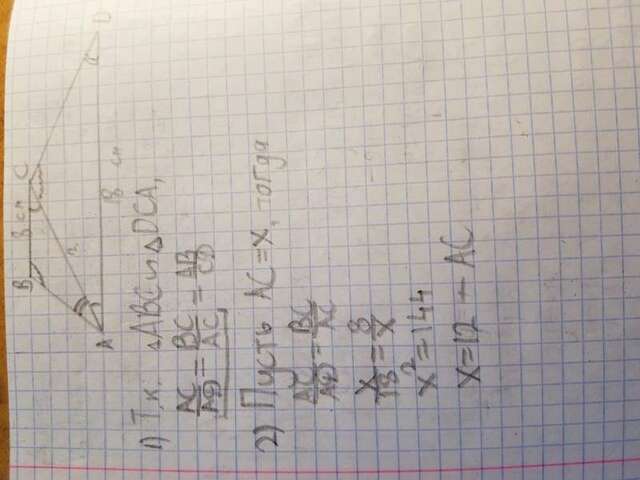 B 8 см C
?
A 18 см D
1) Т.к. △ABC ∾ △DCA,
AC/AD = BC/AC = AB/CD
2) Пусть AC = x, тогда
AC/AD = BC/AC
x/18 = 8/x
x² = 144
x = 12 — AC